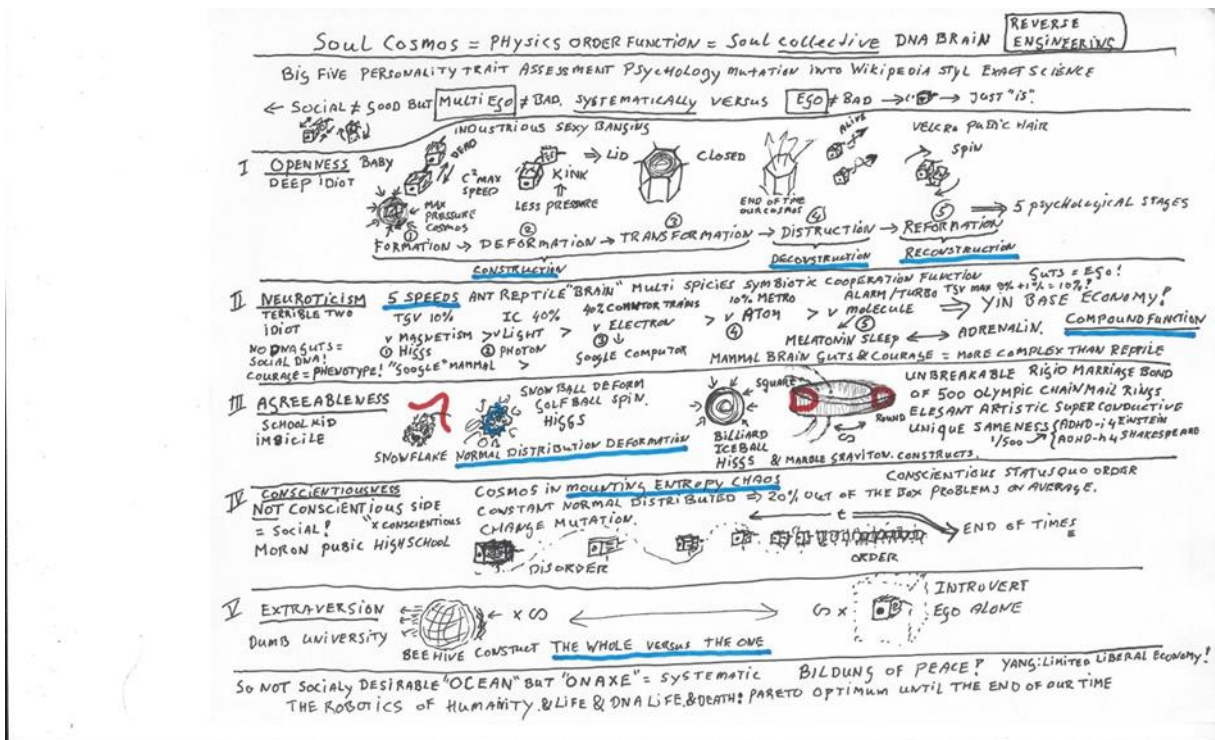 SOUL COSMOS = PHYSICS ORDER FUNCTION = SOUL COLLECTIVE DNA BRAIN REVERSE ENGINEERING
BIG FIVE PERSONALITY TRAIT ASSESSMENT PSYCHOLOGY MUTATION INTO WIKIPEDIA STYL EXACT SCIENCE
← SOCIAL ≠ GOOD BUT MULTI EGO ≠ BAD. SYSTEMATICALLY VERSUS EGO ≠ BAD → → JUST "IS".
INDUSTRIOUS SEXY BANGING
VELCRO PUBIC HAIR
I OPENNESS BABY
DEEP IDIOT
DEAD
C²MAX SPEED
MAX PRESSURE COSMOS
KINK
LESS PRESSURE
⇒ LID
CLOSED
END OF TIME OUR COSMOS
ALIVE
SPIN
① ② ③ ④ ⑤ ⇒ 5 PSYCHOLOGICAL STAGES
FORMATION → DEFORMATION → TRANSFORMATION → DISTRUCTION → REFORMATION
CONSTRUCTION DECONSTRUCTION RECONSTRUCTION
II NEUROTICISM 5 SPEEDS ANT REPTILE "BRAIN" MULTI SPICIES SYMBIOTIC COOPERATION FUNCTION GUTS = EGO!
TERRIBLE TWO IDIOT
TGV 10% IC 40% 40% COMMTOR TRAINS 10% METRO ALARM/TURBO TGV MAX 9% + 1% = 10%?
V MAGNETISM > V LIGHT > V ELECTRON > V ATOM > V MOLECULE → YIN BASE ECONOMY?
① HIGGS ② PHOTON ③ ④ ⑤
COMPOUND FUNCTION
NO DNA GUTS = SOCIAL DNA!
GOOGLE COMPUTOR
MELATONIN SLEEP ↔ ADRENALIN.
COURAGE = PHENOTYPE! "GOOGLE" MAMMAL >
MAMMAL BRAIN GUTS & COURAGE = MORE COMPLEX THAN REPTILE
III AGREEABLENESS
SCHOOL KID
IMBICILE
SNOW BALL DEFORM
GOLF BALL SPIN.
HIGGS
SNOWFLAKE NORMAL DISTRIBUTION DEFORMATION
BILLIARD
ICEBALL
HIGGS & MARBLE GRAVITON. CONSTRUCTS.
SQUARE
ROUND
UNBREAKABLE RIGID MARRIAGE BOND
OF 500 OLYMPIC CHAINMAIL RINGS
ELEGANT ARTISTIC SUPERCONDUCTIVE
UNIQUE SAMENESS { ADHD-i EINSTEIN
1/500 → { ADHD-h SHAKESPEARE
IV CONSCIENTIOUSNESS
NOT CONSCIENTIOUS SIDE
= SOCIAL! "X CONSCIENTIOUS
MORON PUBIC HIGHSCHOOL
COSMOS IN MOUNTING ENTROPY CHAOS
CONSCIENTIOUS STATUSQUO ORDER
CONSTANT NORMAL DISTRIBUTED ⇒ 20% OUT OF THE BOX PROBLEMS ON AVERAGE.
CHANGE MUTATION.
t
END OF TIMES
DISORDER
ORDER
V EXTRAVERSION
DUMB UNIVERSITY
← x ∞
∞ x
INTROVERT
EGO ALONE
BEEHIVE CONSTRUCT THE WHOLE VERSUS THE ONE
SO NOT SOCIALY DESIRABLE "OCEAN" BUT "ONAXE" = SYSTEMATIC BILDUNG OF PEACE? YANG: LIMITED LIBERAL ECONOMY!
THE ROBOTICS OF HUMANITY. & LIFE & DNA LIFE. & DEATH! PARETO OPTIMUM UNTIL THE END OF OUR TIME